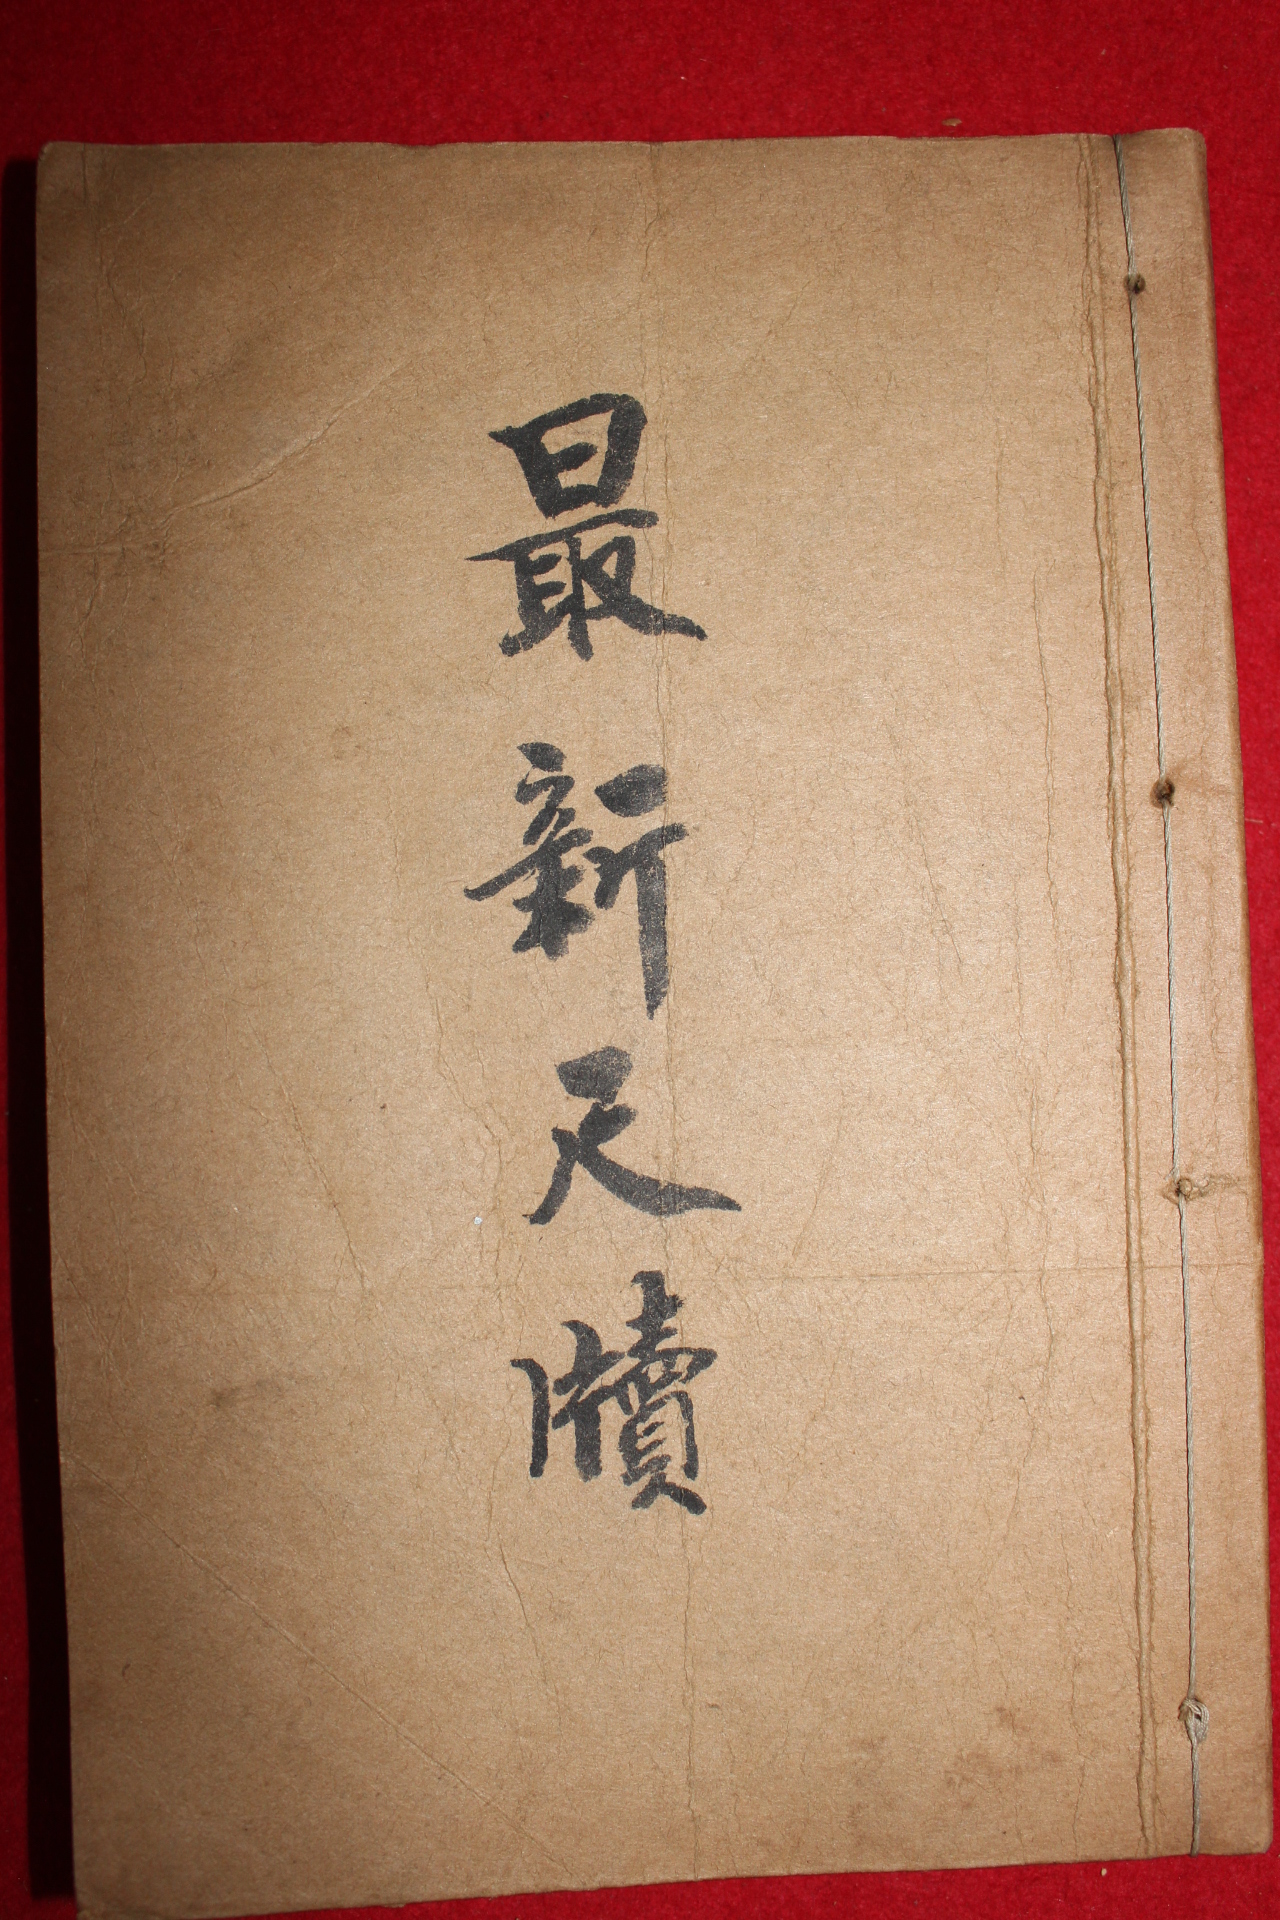 最新尺牘